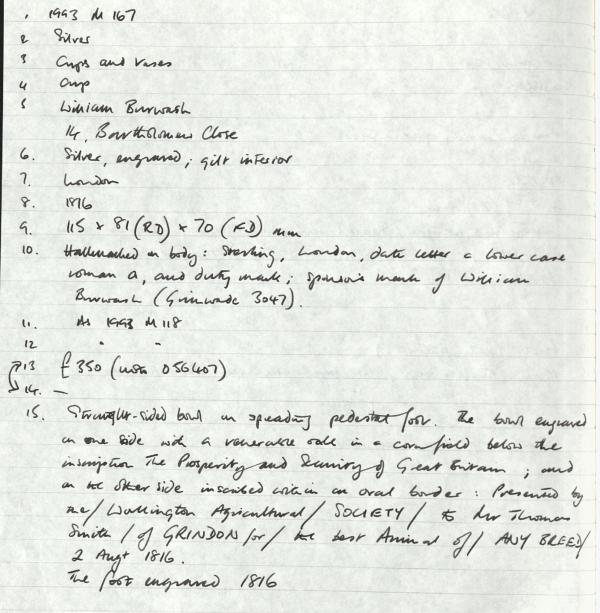 1 1993 M 167
2 Silver
3 Cups and vases
4 Cup
5 William Burwash
14, Bartholomew Close
6. Silver, engraved; gilt interior
7. London
8. 1816
9. 115 x 81 (RD) x 70 (FD) mm
10. Hallmarked on body: Sterling, London, date letter a lower case
roman a, and duty mark; sponsor's mark of William
Burwash (Grimwade 3047).
11. As 1993 M 118
12 " "
13 £350 (with 056407)
14. —
15. Straight-sided bowl on spreading pedestal foot. The bowl engraved
on one side with a venerable oak in a cornfield below the
inscription The Prosperity and Security of Great Britain; and
on the other side inscribed within an oval border: Presented by
the/ Wallington Agricultural/ SOCIETY/ to Mr Thomas
Smith/ of GRINDON for/ the best Animal of/ ANY BREED/
2 Augt 1816.
The foot engraved 1816